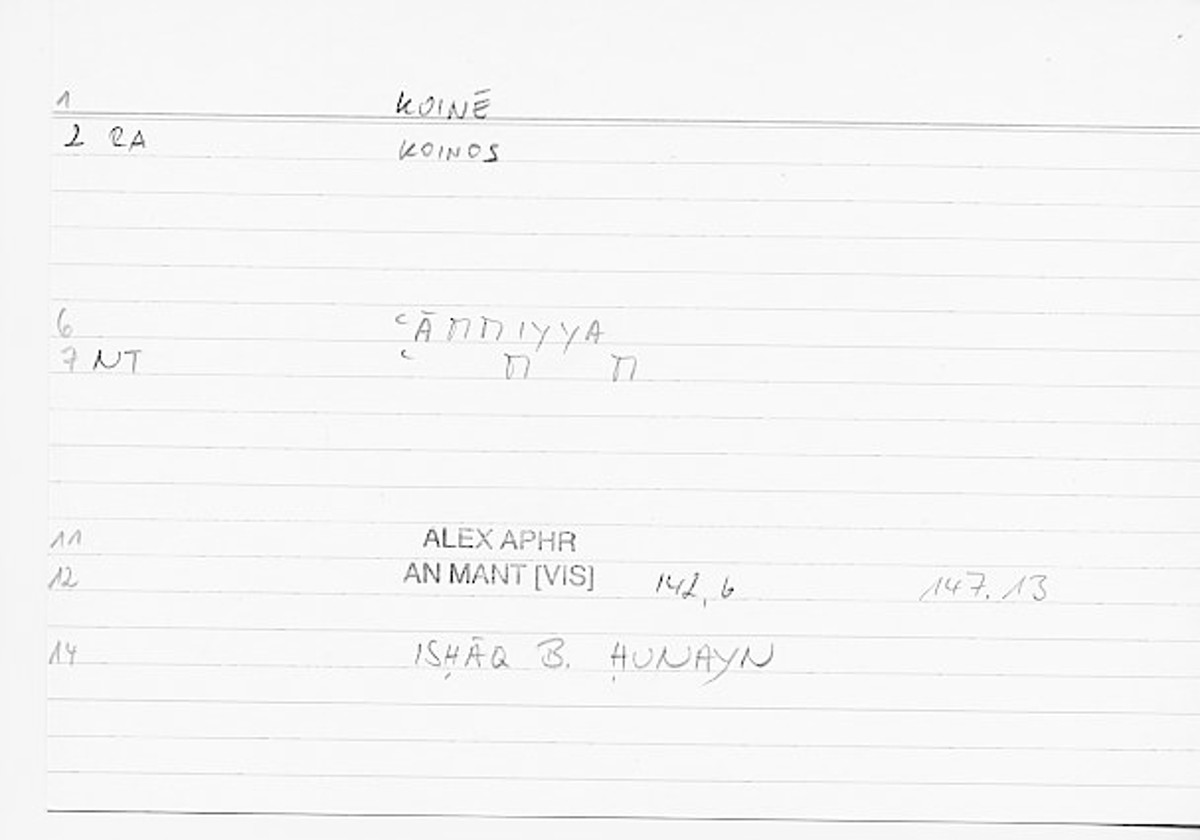 1 KOINĒ
2 RA KOINOS
6 ʿĀMMIYYA
7 NT ʿ M M
11 ALEX APHR
12 AN MANT [VIS] 142,6 147.13
14 ISḤĀQ B. ḤUNAYN